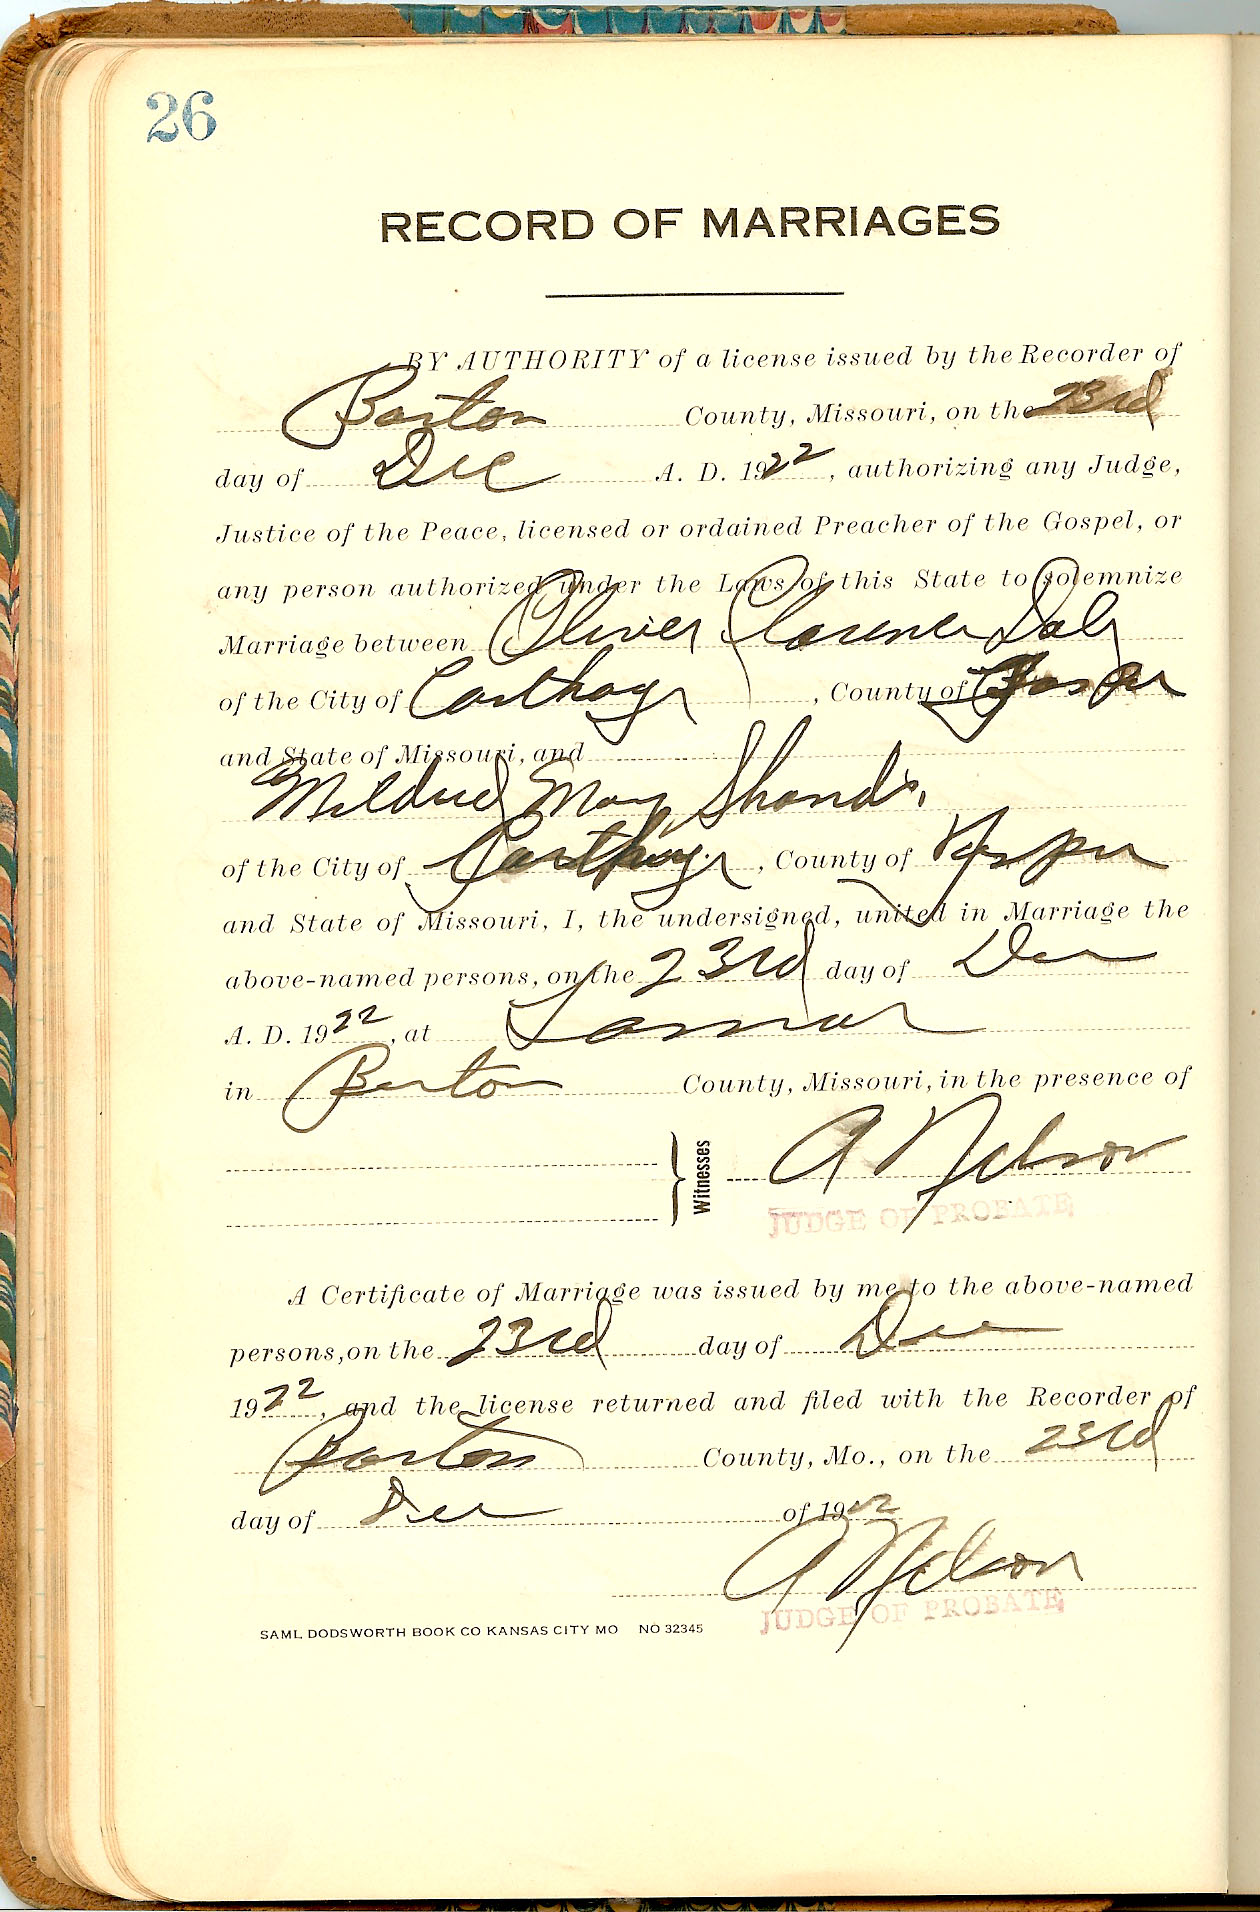 26
RECORD OF MARRIAGES
BY AUTHORITY of a license issued by the Recorder of
Barton County, Missouri, on the 23rd
day of Dec A. D. 1922, authorizing any Judge,
Justice of the Peace, licensed or ordained Preacher of the Gospel, or
any person authorized under the Laws of this State to solemnize
Marriage between Oliver Clarence Daly
of the City of Carthage, County of Jasper
and State of Missouri, and
Mildred May
of the City of Carthage, County of Jasper
and State of Missouri, I, the undersigned, united in Marriage the
above-named persons, on the 23rd day of Dec
A. D. 1922, at Lamar
in Barton County, Missouri, in the presence of
Witnesses A Nelson
JUDGE OF PROBATE
A Certificate of Marriage was issued by me to the above-named
persons, on the 23rd day of Dec
1922, and the license returned and filed with the Recorder of
Barton County, Mo., on the 23rd
day of Dec of 1922
A Nelson
JUDGE OF PROBATE
SAML DODSWORTH BOOK CO KANSAS CITY MO NO 32345